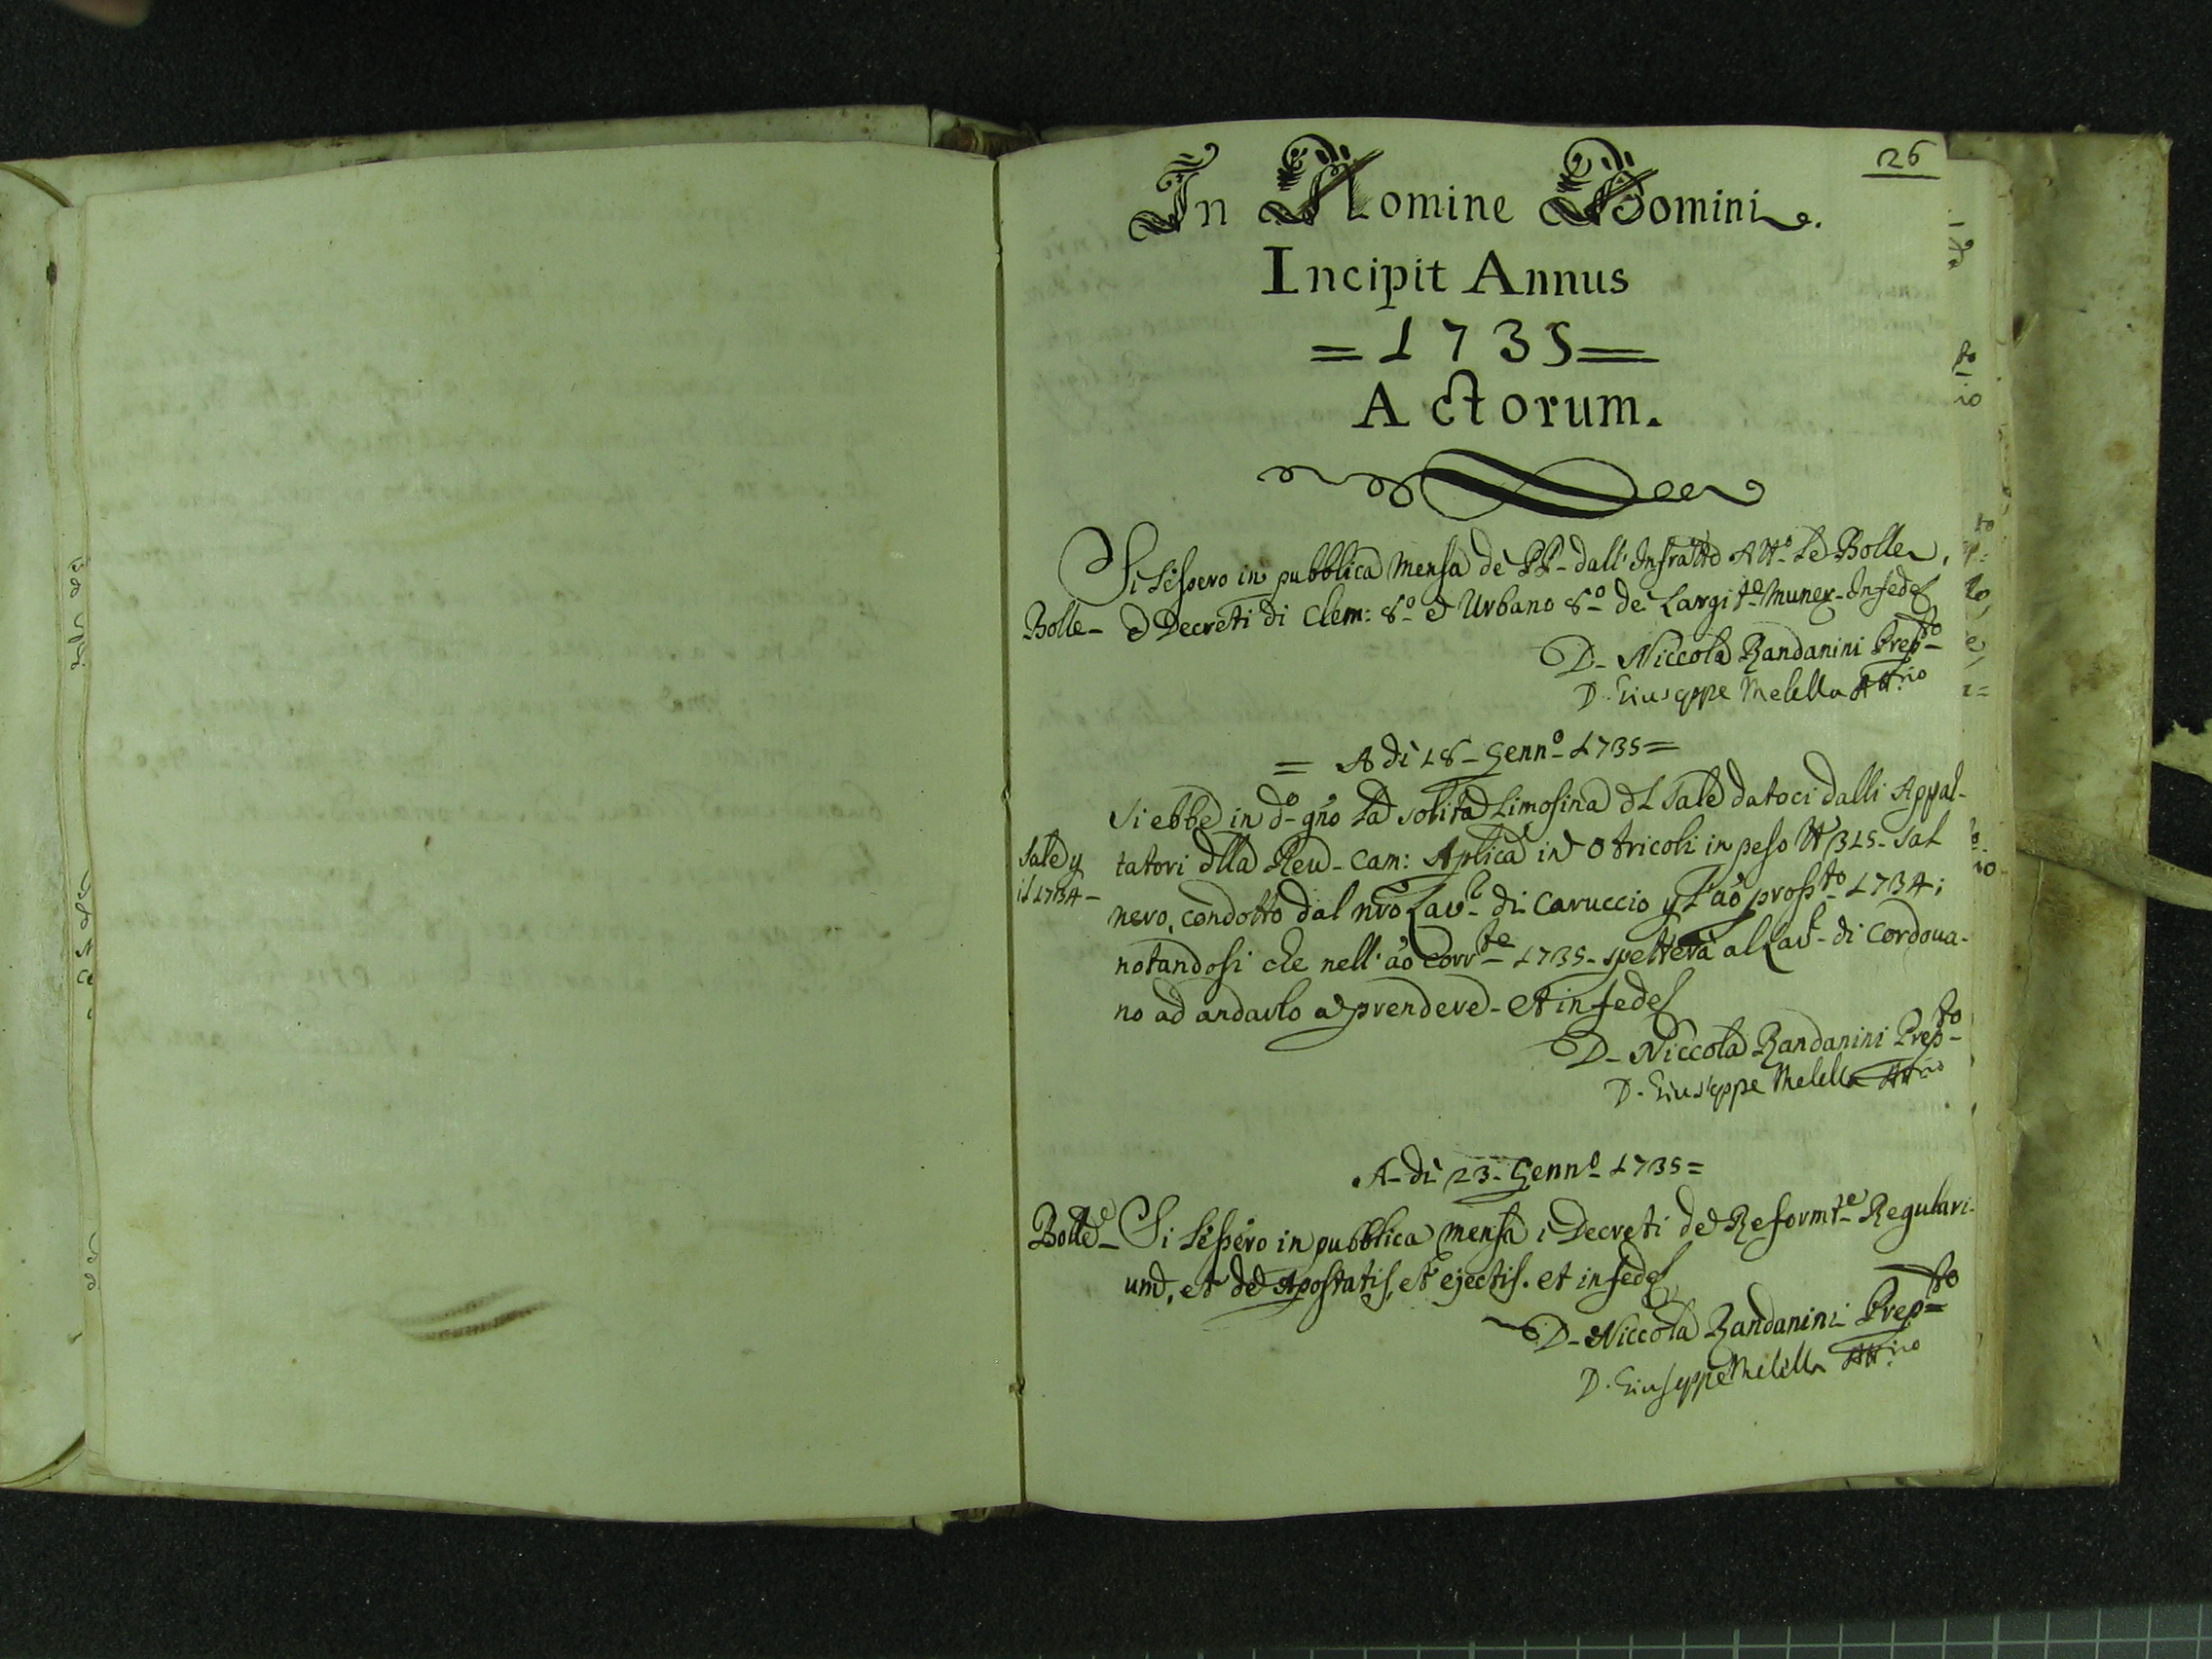 26
In Nomine Domini.
Incipit Annus
= 1735 =
Actorum.
Si lessero in pubblica Mensa de PP. dall' Infratto Att.o le Bolle,
Bolle - e Decreti di Clem: 8.o e Urbano 8.o de Largit.e Muner. In fede
D. Niccola Randanini Prep.to
D. Giuseppe Melella Att.rio
= A di 18 - Genn.o 1735 =
Si ebbe in d.o gño la solita Limosina dl Sale datoci dalli Appal-
tatori dlla Reu. Cam: Aplica in Otricoli in peso tt 315 - Sal
Sale p
il 1734 -
nero, condotto dal nro Lav.e di Caruccio p l'ao pross.to 1734;
notandosi che nell' ao corr.te 1735 - spetterà al Lav.e di Cordoua-
no ad andarlo a prendere - Et in fede
D. Niccola Randanini Prep.to
D. Giuseppe Melella Att.rio
A di 23 - Genn.o 1735 =
Bolle - Si lessero in pubblica mensa i Decreti de Reformt.e Regulari-
um, et de Apostatis, et ejectis. et in fede
D. Niccola Randanini Prep.to
D. Giuseppe Melella Att.rio